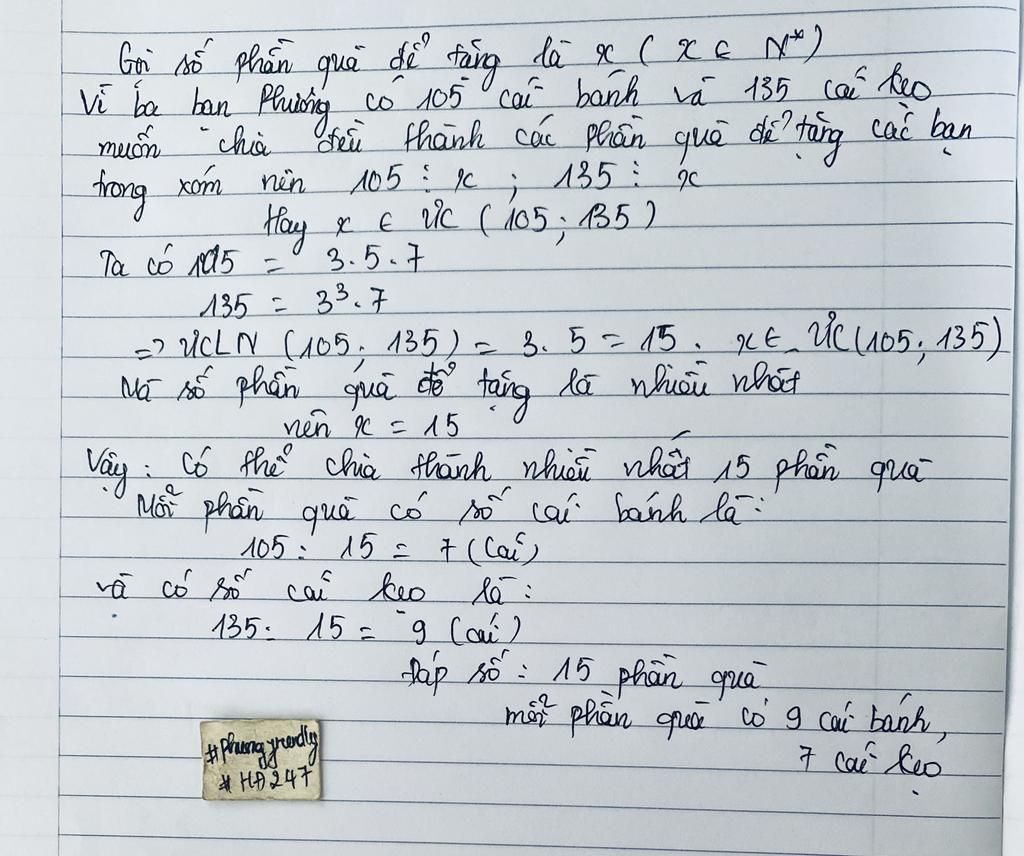 Gọi số phần quà để tặng là x ( x ∈ N*)
Vì ba bạn Phương có 105 cái bánh và 135 cái kẹo
muốn chia đều thành các phần quà để tặng các bạn
trong xóm nên 105 ⋮ x ; 135 ⋮ x
Hay x ∈ ƯC ( 105 ; 135 )
Ta có 105 = 3.5.7
135 = 3³.7
=> ƯCLN (105; 135) = 3. 5 = 15. x ∈ ƯC(105; 135)
Mà số phần quà để tặng là nhiều nhất
nên x = 15
Vậy: Có thể chia thành nhiều nhất 15 phần quà
Mỗi phần quà có số cái bánh là:
105 : 15 = 7 (cái)
và có số cái kẹo là:
135 : 15 = 9 (cái)
Đáp số: 15 phần quà
mỗi phần quà có 9 cái bánh,
7 cái kẹo
#HĐ247